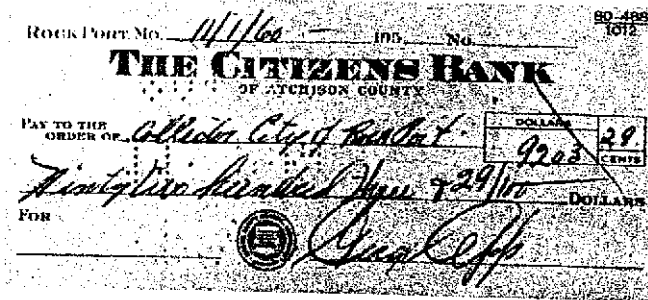 80-488
1012
ROCK PORT, MO. 11/1/60 195 No.
THE CITIZENS BANK
OF ATCHISON COUNTY
PAY TO THE
ORDER OF Collector City of Rock Port
DOLLARS
9203 29
CENTS
Ninty two hundred three & 29/100 DOLLARS
FOR